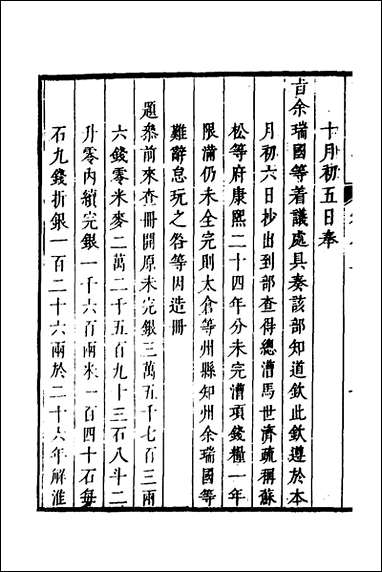 十月初五日奉
旨余瑞國等着議處具奏該部知道欽此欽遵於本
月初六日抄出到部查得總漕馬世濟疏稱蘇
松等府康熙二十四年分未完漕項錢糧一年
限滿仍未全完則太倉等州縣知州余瑞國等
難辭怠玩之咎等因造冊
題參前來查冊開原未完銀三萬五千七百三兩
六錢零米麥二萬二千五百九十三石八斗二
升零內續完銀一千六百兩米一百四十石每
石九錢折銀一百二十六兩於二十六年解淮